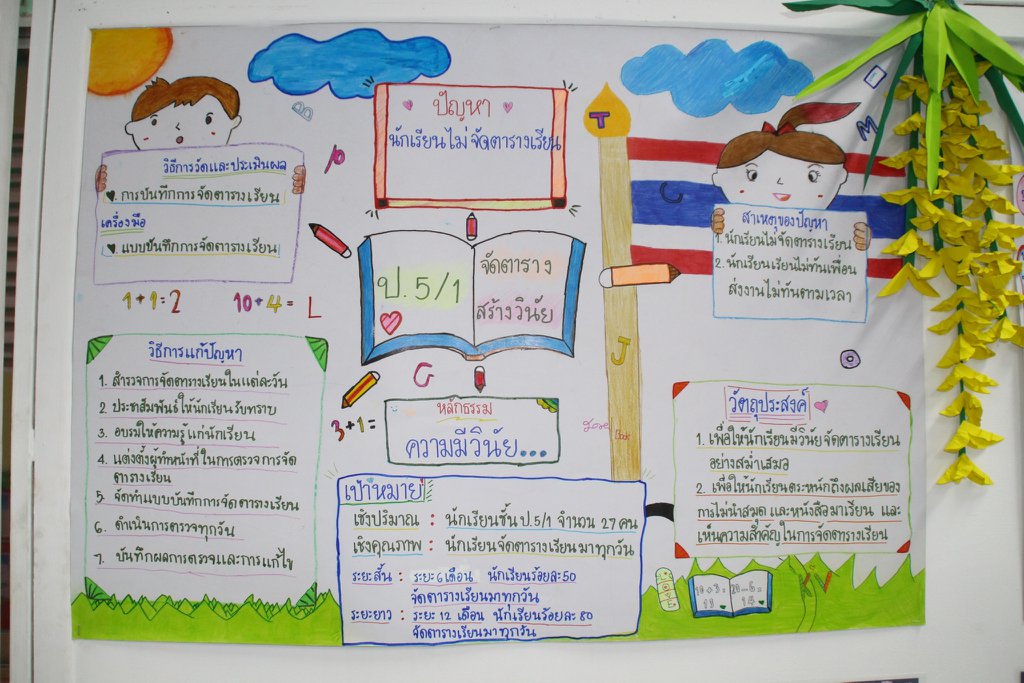 ปัญหา
นักเรียนไม่จัดตารางเรียน
วิธีการวัดและประเมินผล
การบันทึกการจัดตารางเรียน
เครื่องมือ
แบบบันทึกการจัดตารางเรียน
1+1=2
10+4=
L
P
M
T
C
สาเหตุของปัญหา
1. นักเรียนไม่จัดตารางเรียน
2. นักเรียนเรียนไม่ทันเพื่อน
ส่งงานไม่ทันตามเวลา
ป.5/1
จัดตาราง
สร้างวินัย
J
G
3+1=
หลักธรรม
ความมีวินัย...
วิธีการแก้ปัญหา
1. สำรวจการจัดตารางเรียนในแต่ละวัน
2. ประชาสัมพันธ์ให้นักเรียนรับทราบ
3. อบรมให้ความรู้แก่นักเรียน
4. แต่งตั้งผู้ทำหน้าที่ในการตรวจการจัด
ตารางเรียน
5. จัดทำแบบบันทึกการจัดตารางเรียน
6. ดำเนินการตรวจทุกวัน
7. บันทึกผลการตรวจและการแก้ไข
เป้าหมาย
เชิงปริมาณ : นักเรียนชั้น ป.5/1 จำนวน 27 คน
เชิงคุณภาพ : นักเรียนจัดตารางเรียนมาทุกวัน
ระยะสั้น : ระยะ 6 เดือน นักเรียนร้อยละ 50
จัดตารางเรียนมาทุกวัน
ระยะยาว : ระยะ 12 เดือน นักเรียนร้อยละ 80
จัดตารางเรียนมาทุกวัน
Love
Book
วัตถุประสงค์
1. เพื่อให้นักเรียนมีวินัยจัดตารางเรียน
อย่างสม่ำเสมอ
2. เพื่อให้นักเรียนตระหนักถึงผลเสียของ
การไม่นำสมุด และหนังสือมาเรียน และ
เห็นความสำคัญในการจัดตารางเรียน